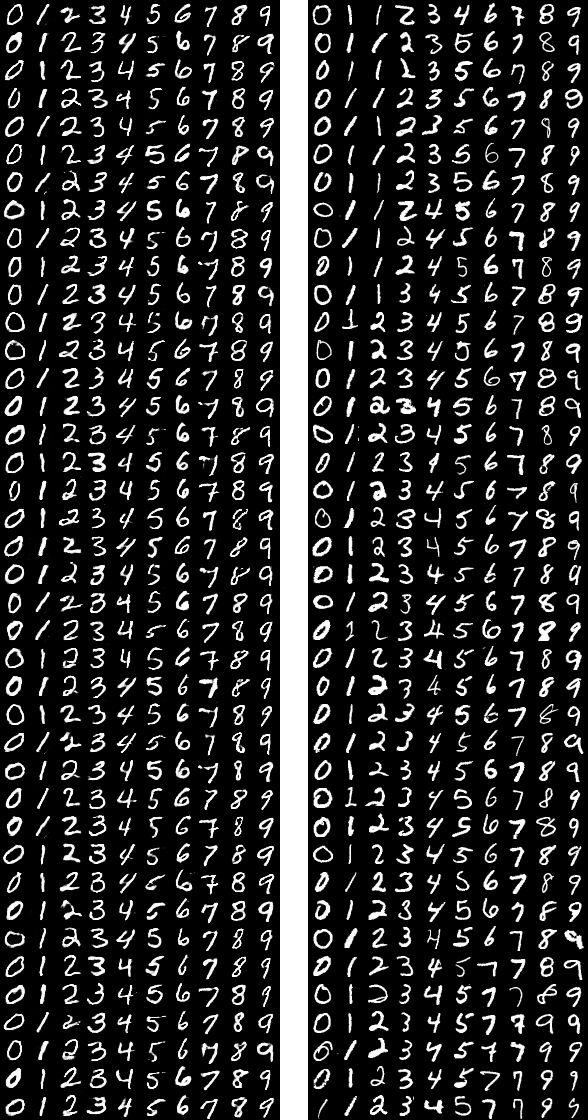 0 1 2 3 4 5 6 7 8 9 0 1 1 2 3 4 6 7 8 9
0 1 2 3 4 5 6 7 8 9 0 1 1 2 3 6 6 7 8 9
0 1 2 3 4 5 6 7 8 9 0 1 1 2 3 5 6 7 8 9
0 1 2 3 4 5 6 7 8 9 0 1 1 2 3 5 6 7 8 9
0 1 2 3 4 5 6 7 8 9 0 1 1 2 3 5 6 7 8 9
0 1 2 3 4 5 6 7 8 9 0 1 1 2 3 5 6 7 8 9
0 1 2 3 4 5 6 7 8 9 0 1 1 2 3 5 6 7 8 9
0 1 2 3 4 5 6 7 8 9 0 1 1 2 4 5 6 7 8 9
0 1 2 3 4 5 6 7 8 9 0 1 1 2 4 5 6 7 8 9
0 1 2 3 4 5 6 7 8 9 0 1 1 2 4 5 6 7 8 9
0 1 2 3 4 5 6 7 8 9 0 1 1 3 4 5 6 7 8 9
0 1 2 3 4 5 6 7 8 9 0 1 2 3 4 5 6 7 8 9
0 1 2 3 4 5 6 7 8 9 0 1 2 3 4 5 6 7 8 9
0 1 2 3 4 5 6 7 8 9 0 1 2 3 4 5 6 7 8 9
0 1 2 3 4 5 6 7 8 9 0 1 2 3 4 5 6 7 8 9
0 1 2 3 4 5 6 7 8 9 0 1 2 3 4 5 6 7 8 9
0 1 2 3 4 5 6 7 8 9 0 1 2 3 4 5 6 7 8 9
0 1 2 3 4 5 6 7 8 9 0 1 2 3 4 5 6 7 8 9
0 1 2 3 4 5 6 7 8 9 0 1 2 3 4 5 6 7 8 9
0 1 2 3 4 5 6 7 8 9 0 1 2 3 4 5 6 7 8 9
0 1 2 3 4 5 6 7 8 9 0 1 2 3 4 5 6 7 8 9
0 1 2 3 4 5 6 7 8 9 0 1 2 3 4 5 6 7 8 9
0 1 2 3 4 5 6 7 8 9 0 1 2 3 4 5 6 7 8 9
0 1 2 3 4 5 6 7 8 9 0 1 2 3 4 5 6 7 8 9
0 1 2 3 4 5 6 7 8 9 0 1 2 3 4 5 6 7 8 9
0 1 2 3 4 5 6 7 8 9 0 1 2 3 4 5 6 7 8 9
0 1 2 3 4 5 6 7 8 9 0 1 2 3 4 5 6 7 8 9
0 1 2 3 4 5 6 7 8 9 0 1 2 3 4 5 6 7 8 9
0 1 2 3 4 5 6 7 8 9 0 1 2 3 4 5 6 7 8 9
0 1 2 3 4 5 6 7 8 9 0 1 2 3 4 5 6 7 8 9
0 1 2 3 4 5 6 7 8 9 0 1 2 3 4 5 6 7 8 9
0 1 2 3 4 5 6 7 8 9 0 1 2 3 4 5 6 7 8 9
0 1 2 3 4 5 6 7 8 9 0 1 2 3 4 5 6 7 8 9
0 1 2 3 4 5 6 7 8 9 0 1 2 3 4 5 6 7 8
0 1 2 3 4 5 6 7 8 9 0 1 2 3 4 5 7 7 8 9
0 1 2 3 4 5 6 7 8 9 0 1 2 3 4 5 7 7 8 9
0 1 2 3 4 5 6 7 8 9 0 1 2 3 4 5 7 7 9 9
0 1 2 3 4 5 6 7 8 9 0 1 2 3 4 5 7 7 9 9
0 1 2 3 4 5 6 7 8 9 0 1 2 3 4 5 7 7 9 9
0 1 2 3 4 5 6 7 8 9 1 1 2 3 4 5 7 9 9 9